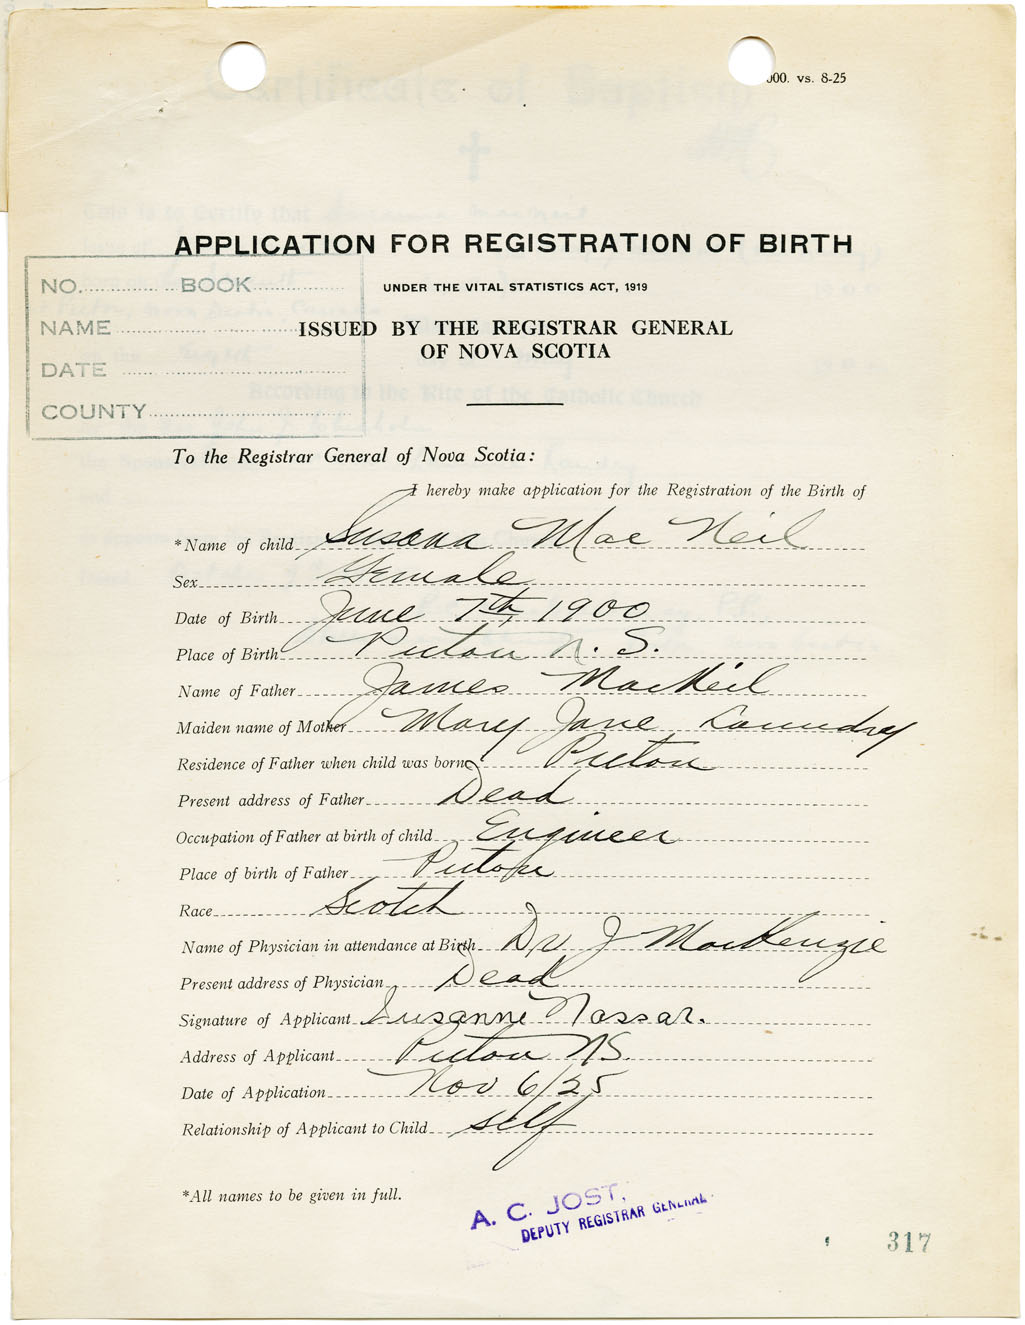 000. vs. 8-25
APPLICATION FOR REGISTRATION OF BIRTH
UNDER THE VITAL STATISTICS ACT, 1919
ISSUED BY THE REGISTRAR GENERAL
OF NOVA SCOTIA
NO. BOOK
NAME
DATE
COUNTY
To the Registrar General of Nova Scotia:
I hereby make application for the Registration of the Birth of
*Name of child Susana Mac Neil
Sex Female
Date of Birth June 7th, 1900
Place of Birth Pictou N. S.
Name of Father James MacNeil
Maiden name of Mother Mary Jane Laundry
Residence of Father when child was born Pictou
Present address of Father Dead
Occupation of Father at birth of child Engineer
Place of birth of Father Pictou
Race Scotch
Name of Physician in attendance at Birth Dr J MacKenzie
Present address of Physician Dead
Signature of Applicant Susanne Nassar.
Address of Applicant Pictou NS
Date of Application Nov 6/25
Relationship of Applicant to Child self
*All names to be given in full.
A. C. JOST,
DEPUTY REGISTRAR GENERAL
317